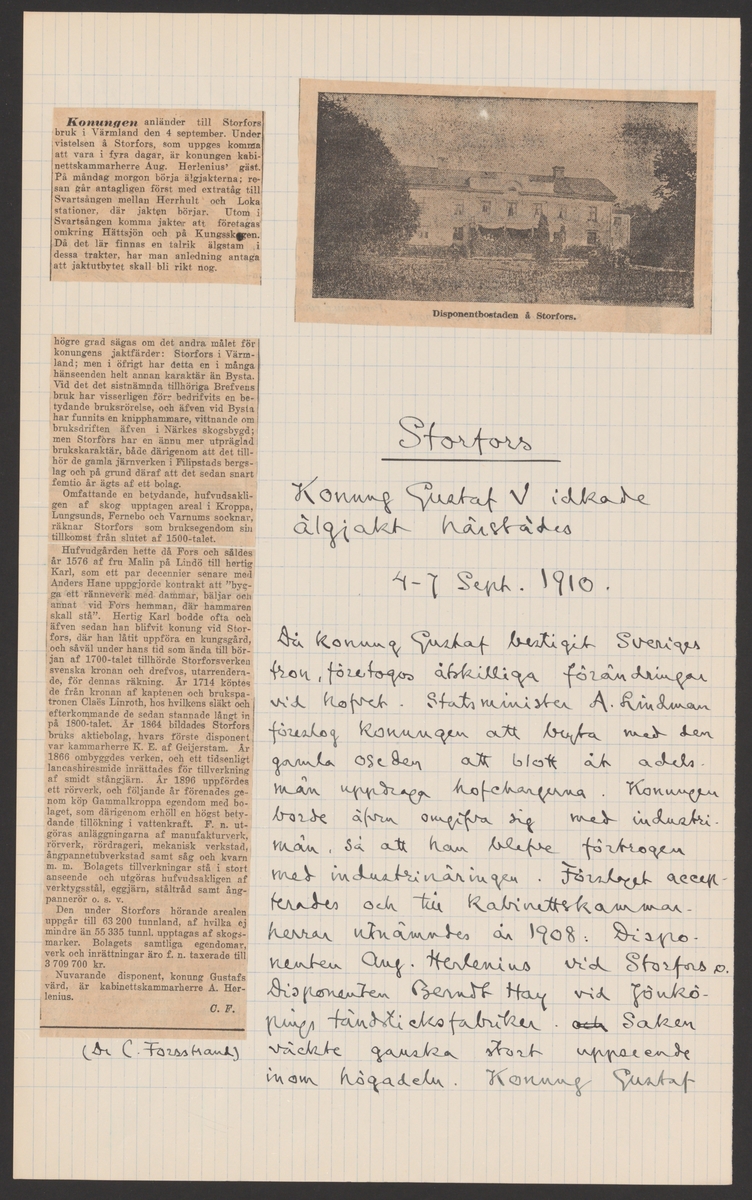 Konungen anländer till Storfors
bruk i Värmland den 4 september. Under
vistelsen å Storfors, som uppges komma
att vara i fyra dagar, är konungen kabi-
nettskammarherre Aug. Herlenius' gäst.
På måndag morgon börja älgjakterna; re-
san går antagligen först med extratåg till
Svartsången mellan Herrhult och Loka
stationer, där jakten börjar. Utom i
Svartsången komma jakter att företagas
omkring Hättsjön och på Kungsskogen.
Då det lär finnas en talrik älgstam i
dessa trakter, har man anledning antaga
att jaktutbytet skall bli rikt nog.
Disponentbostaden å Storfors.
högre grad sägas om det andra målet för
konungens jaktfärder: Storfors i Värm-
land; men i öfrigt har detta en i många
hänseenden helt annan karaktär än Bysta.
Vid det det sistnämnda tillhöriga Brefvens
bruk har visserligen förr bedrifvits en be-
tydande bruksrörelse, och äfven vid Bysta
har funnits en knipphammare, vittnande om
bruksdriften äfven i Närkes skogsbygd;
men Storfors har en ännu mer utpräglad
brukskaraktär, både därigenom att det till-
hör de gamla järnverken i Filipstads bergs-
lag och på grund däraf att det sedan snart
femtio år ägts af ett bolag.
Omfattande en betydande, hufvudsakli-
gen af skog upptagen areal i Kroppa,
Lungsunds, Fernebo och Varnums socknar,
räknar Storfors som bruksegendom sin
tillkomst från slutet af 1500-talet.
Hufvudgården hette då Fors och såldes
år 1576 af fru Malin på Lindö till hertig
Karl, som ett par decennier senare med
Anders Hane uppgjorde kontrakt att "byg-
ga ett ränneverk med dammar, bäljar och
annat vid Fors hemman, där hammaren
skall stå". Hertig Karl bodde ofta och
äfven sedan han blifvit konung vid Stor-
fors, där han låtit uppföra en kungsgård,
och såväl under hans tid som ända till bör-
jan af 1700-talet tillhörde Storforsverken
svenska kronan och drefvos, utarrendera-
de, för dennas räkning. År 1714 köptes
de från kronan af kaptenen och brukspa-
tronen Claës Linroth, hos hvilkens släkt och
efterkommande de sedan stannade långt in
på 1800-talet. År 1864 bildades Storfors
bruks aktiebolag, hvars förste disponent
var kammarherre K. E. af Geijerstam. År
1866 ombyggdes verken, och ett tidsenligt
lancashiresmide inrättades för tillverkning
af smidt stångjärn. År 1896 uppfördes
ett rörverk, och följande år förenades ge-
nom köp Gammalkroppa egendom med bo-
laget, som därigenom erhöll en högst bety-
dande tillökning i vattenkraft. F. n. ut-
göras anläggningarna af manufakturverk,
rörverk, rördrageri, mekanisk verkstad,
ångpannetubverkstad samt såg och kvarn
m. m. Bolagets tillverkningar stå i stort
anseende och utgöras hufvudsakligen af
verktygsstål, eggjärn, ståltråd samt ång-
pannerör o. s. v.
Den under Storfors hörande arealen
uppgår till 63 200 tunnland, af hvilka ej
mindre än 55 335 tunnl. upptagas af skogs-
marker. Bolagets samtliga egendomar,
verk och inrättningar äro f. n. taxerade till
3 709 700 kr.
Nuvarande disponent, konung Gustafs
värd, är kabinettskammarherre A. Her-
lenius.
C. F.
(Dr C. Forsstrand)
Storfors
Konung Gustaf V idkade
älgjakt härstädes
4-7 Sept. 1910.
Då konung Gustaf bestigit Sveriges
tron, företogos åtskilliga förändringar
vid hofvet. Statsminister A. Lindman
föreslog konungen att bryta med den
gamla oseden att blott åt adels-
män uppdraga hofchargerna. Konungen
borde äfven omgifva sig med industri-
män, så att han blefve förtrogen
med industrinäringen. Förslaget accep-
terades och till kabinettskammar-
herrar utnämndes år 1908: Dispo-
nenten Aug. Herlenius vid Storfors o.
Disponenten Berndt Hay vid Jönkö-
pings tändsticksfabriker. och Saken
väckte ganska stort uppseende
inom högadeln. Konung Gustaf